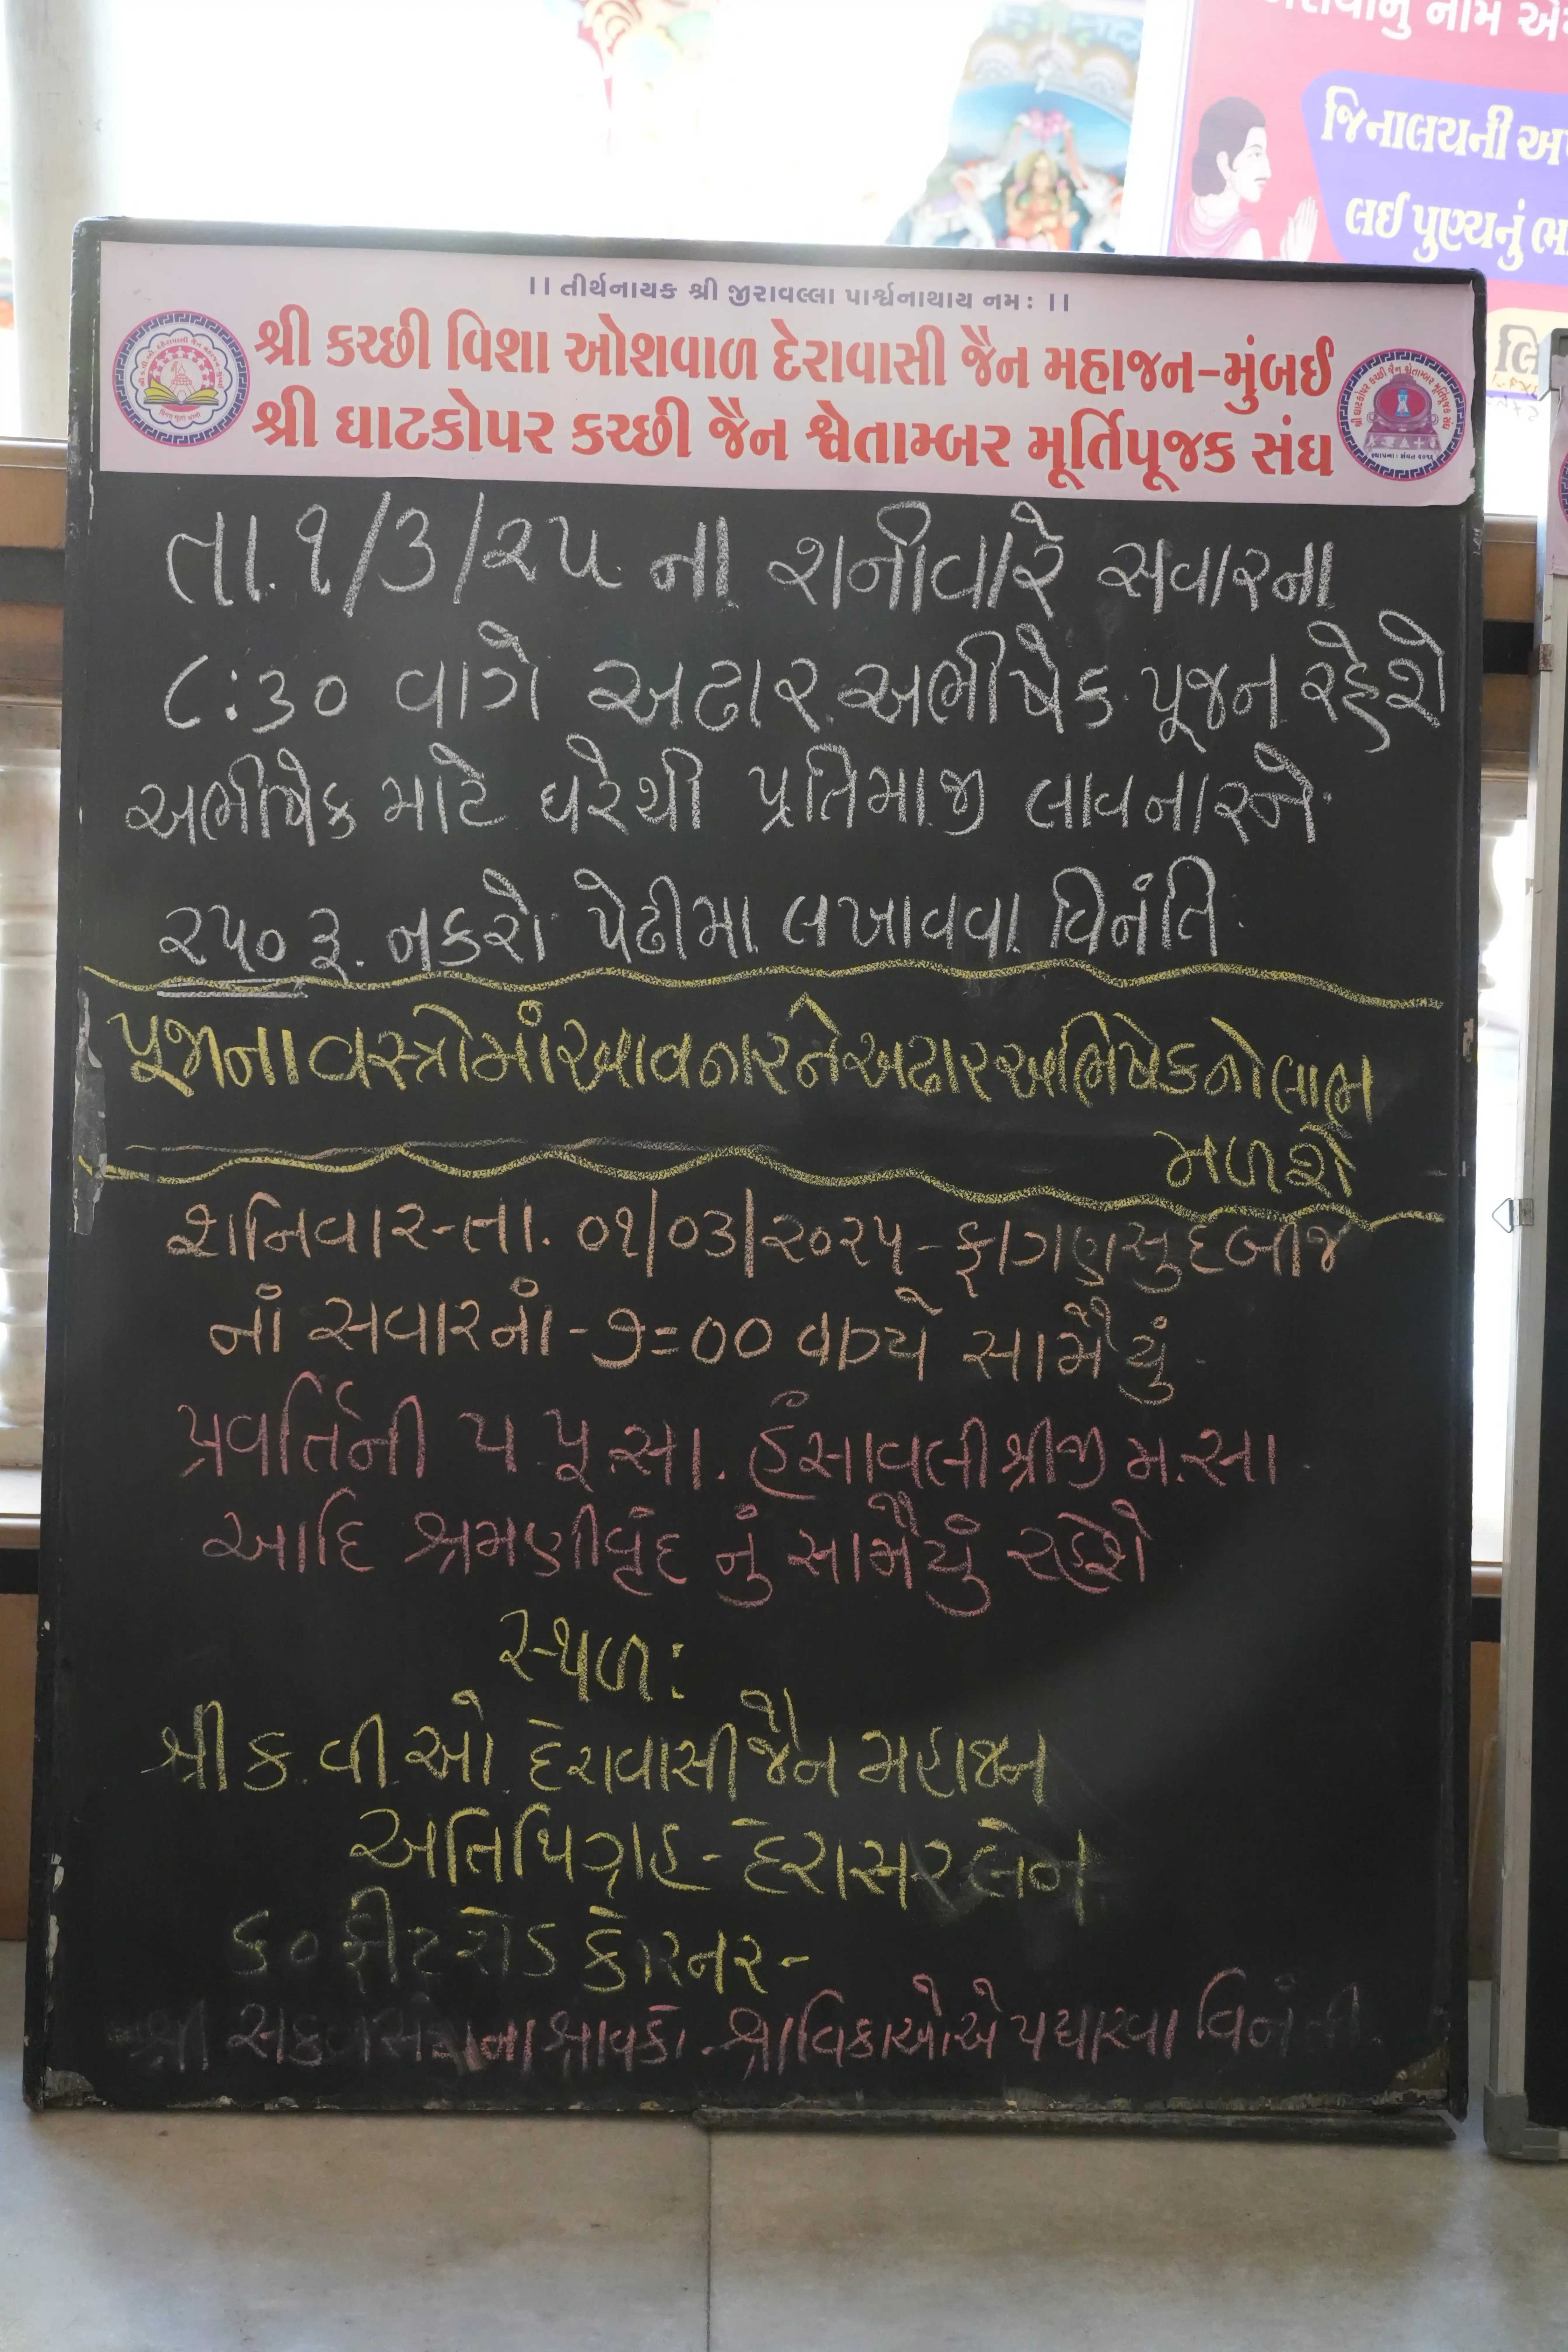 રાયાનું નામ
જિનાલયની
લઈ પુણ્યનું
લિ
।। તીર્થનાયક શ્રી જીરાવલ્લા પાર્શ્વનાથાય નમઃ ।।
શ્રી કચ્છી વિશા ઓશવાળ દેરાવાસી જૈન મહાજન-મુંબઈ
શ્રી ઘાટકોપર કચ્છી જૈન શ્વેતામ્બર મૂર્તિપૂજક સંઘ
તા.૧/૩/૨૫ ના શનીવારે સવારના
૮:૩૦ વાગે અઢાર અભીષેક પૂજન રહેશે
અભીષેક માટે ઘરેથી પ્રતિમાજી લાવનારને
૨૫૦ રૂ. નકરો પેઢીમા લખાવવા વિનંતિ
પૂજાના વસ્ત્રોમાં આવનારને અઢાર અભિષેકનો લાભ
મળશે
શનિવાર-તા. ૦૧/૦૩/૨૦૨૫- ફાગણ સુદ બીજ
નાં સવારનાં - ૭=૦૦ વાગ્યે સામૈયું
પ્રવર્તિની પ પૂ.સા. હંસાવલીશ્રીજી મ.સા
આદિ શ્રમણીવૃંદ નું સામૈયું રહેશે
સ્થળ:
શ્રી ક.વી.ઓ. દેરાવાસી જૈન મહાજન
અતિથિગ્રાહ - દેરાસર લેન
૬૦ ફીટ રોડ કોરનર-
શ્રી સકલસંઘના શ્રાવકો - શ્રાવિકાઓએ પધારવા વિનંતી